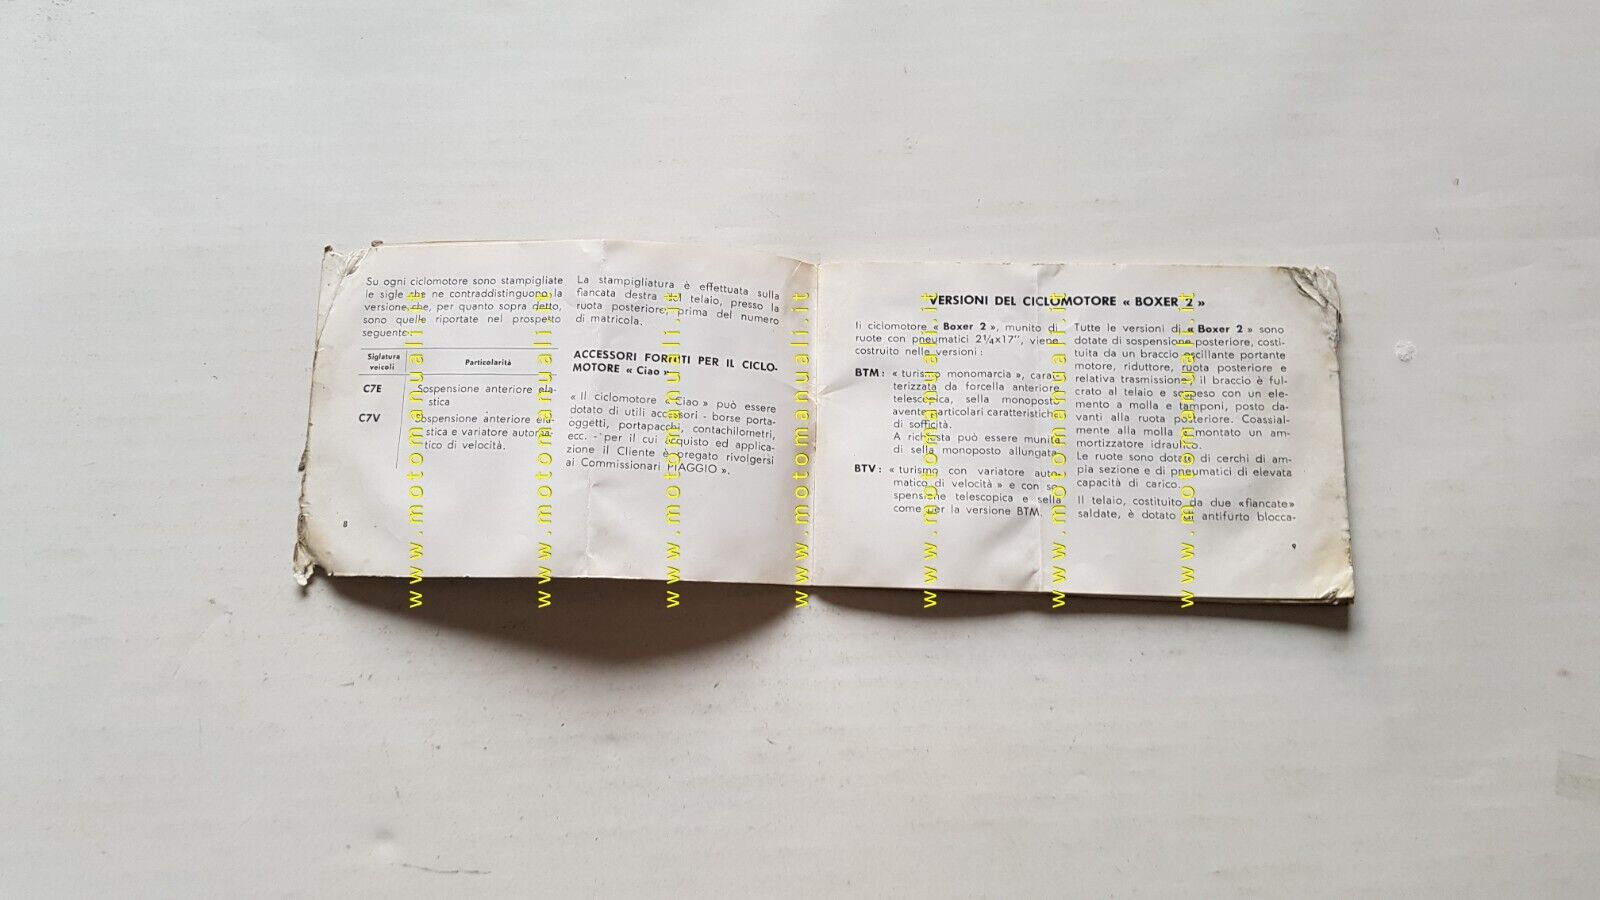 Su ogni ciclomotore sono stampigliate
le sigle che ne contraddistinguono la
versione che, per quanto sopra detto,
sono quelle riportate nel prospetto
seguente:
Siglatura veicoli Particolarità
C7E Sospensione anteriore ela-
stica
C7V Sospensione anteriore ela-
stica e variatore automa-
tico di velocità.
8
La stampigliatura è effettuata sulla
fiancata destra del telaio, presso la
ruota posteriore, prima del numero
di matricola.
ACCESSORI FORNITI PER IL CICLO-
MOTORE « Ciao »
« Il ciclomotore « Ciao » può essere
dotato di utili accessori - borse porta-
oggetti, portapacchi, contachilometri,
ecc. - per il cui acquisto ed applica-
zione il Cliente è pregato rivolgersi
ai Commissionari PIAGGIO ».
VERSIONI DEL CICLOMOTORE « BOXER 2 »
Il ciclomotore « Boxer 2 », munito di
ruote con pneumatici 2¼x17", viene
costruito nelle versioni :
BTM : « turismo monomarcia », carat-
terizzata da forcella anteriore
telescopica, sella monoposto
avente particolari caratteristiche
di sofficità.
A richiesta può essere munita
di sella monoposto allungata
BTV : « turismo con variatore auto-
matico di velocità » e con so-
spensione telescopica e sella
come per la versione BTM.
Tutte le versioni di « Boxer 2 » sono
dotate di sospensione posteriore, costi-
tuita da un braccio oscillante portante
motore, riduttore, ruota posteriore e
relativa trasmissione; il braccio è ful-
crato al telaio e sospeso con un ele-
mento a molla e tamponi, posto da-
vanti alla ruota posteriore. Coassial-
mente alla molla è montato un am-
mortizzatore idraulico.
Le ruote sono dotate di cerchi di am-
pia sezione e di pneumatici di elevata
capacità di carico.
Il telaio, costituito da due «fiancate»
saldate, è dotato di antifurto blocca-
9
www.motomanuali.it
www.motomanuali.it
www.motomanuali.it
www.motomanuali.it
www.motomanuali.it
www.motomanuali.it
www.motomanuali.it